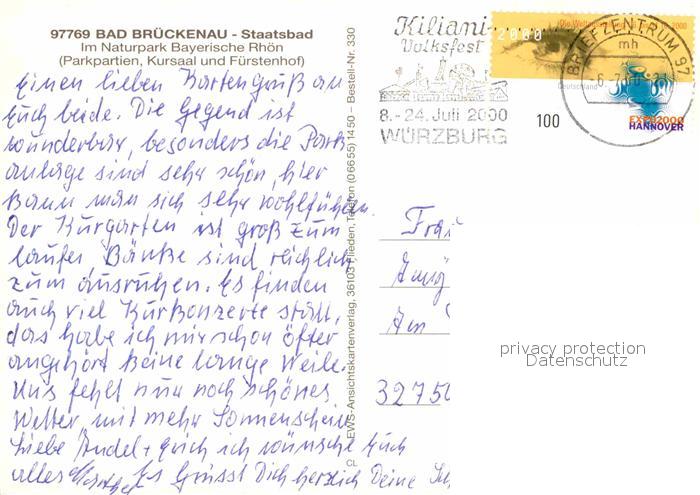 97769 BAD BRÜCKENAU - Staatsbad
Im Naturpark Bayerische Rhön
(Parkpartien, Kursaal und Fürstenhof)
Einen lieben Kartengruß an
Euch beide. Die Gegend ist
wunderbar, besonders die Park
anlage sind sehr schön, hier
kann man sich sehr wohlfühlen.
Der Kurgarten ist groß zum
laufen, Bänke sind reichlich
zum ausruhen. Es finden
auch viel Kurkonzerte statt,
das habe ich mir schon öfter
angehört keine lange Weile.
Uns fehlt nur noch schönes
Wetter mit mehr Sonnenschein
Liebe ich wünsche Euch
alles Es Grüsst Dich herzlich Deine
CL EWS-Ansichtskartenverlag, 36103 Flieden, Telefon (06655) 1450 – Bestell-Nr. 330
Kiliani-
Volksfest
8.-24. Juli 2000
WÜRZBURG
2000
Deutschland
100
EXPO2000
HANNOVER
BRIEFZENTRUM 97
mh
Frau
Am
3275
privacy protection
Datenschutz